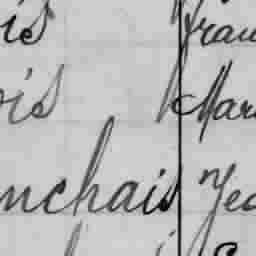 is Fran
ois Mar
nchais Jea